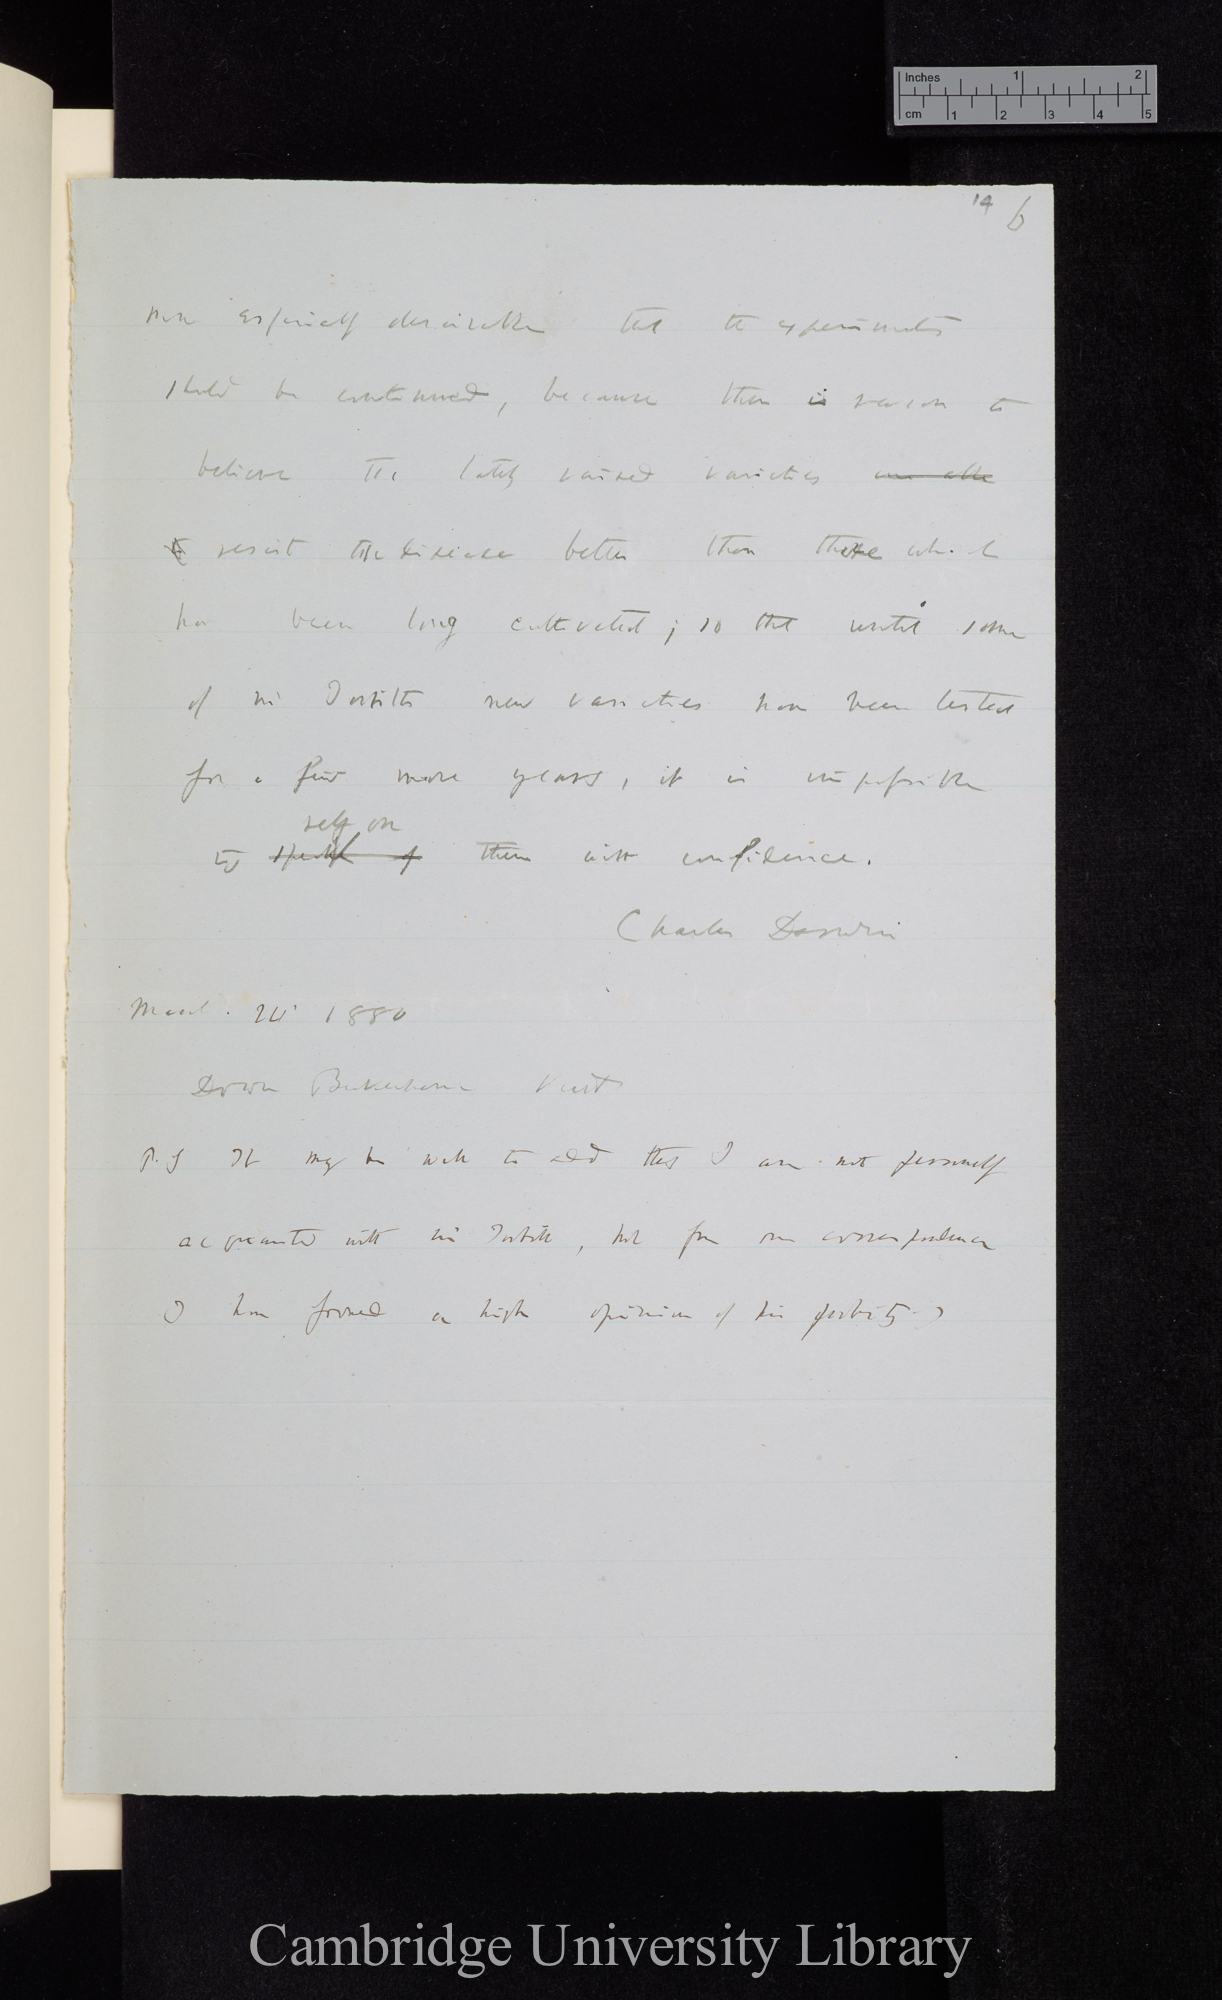 Inches 1 2
cm 1 2 3 4 5
14 6
more especially desirable that the experiments
should be continued, because there is reason to
believe the lately raised varieties are able
to resist the disease better than those which
have been long cultivated; so that until some
of Mr Torbitts new varieties have been tested
for a few more years, it is impossible
rely on
to speak of them with confidence.
Charles Darwin
March. 1880
Down Beckenham Kent
P.S It may be well to add that I am not personally
acquainted with Mr Torbitt, but from our correspondence
I have formed a high opinion of his probity.
Cambridge University Library